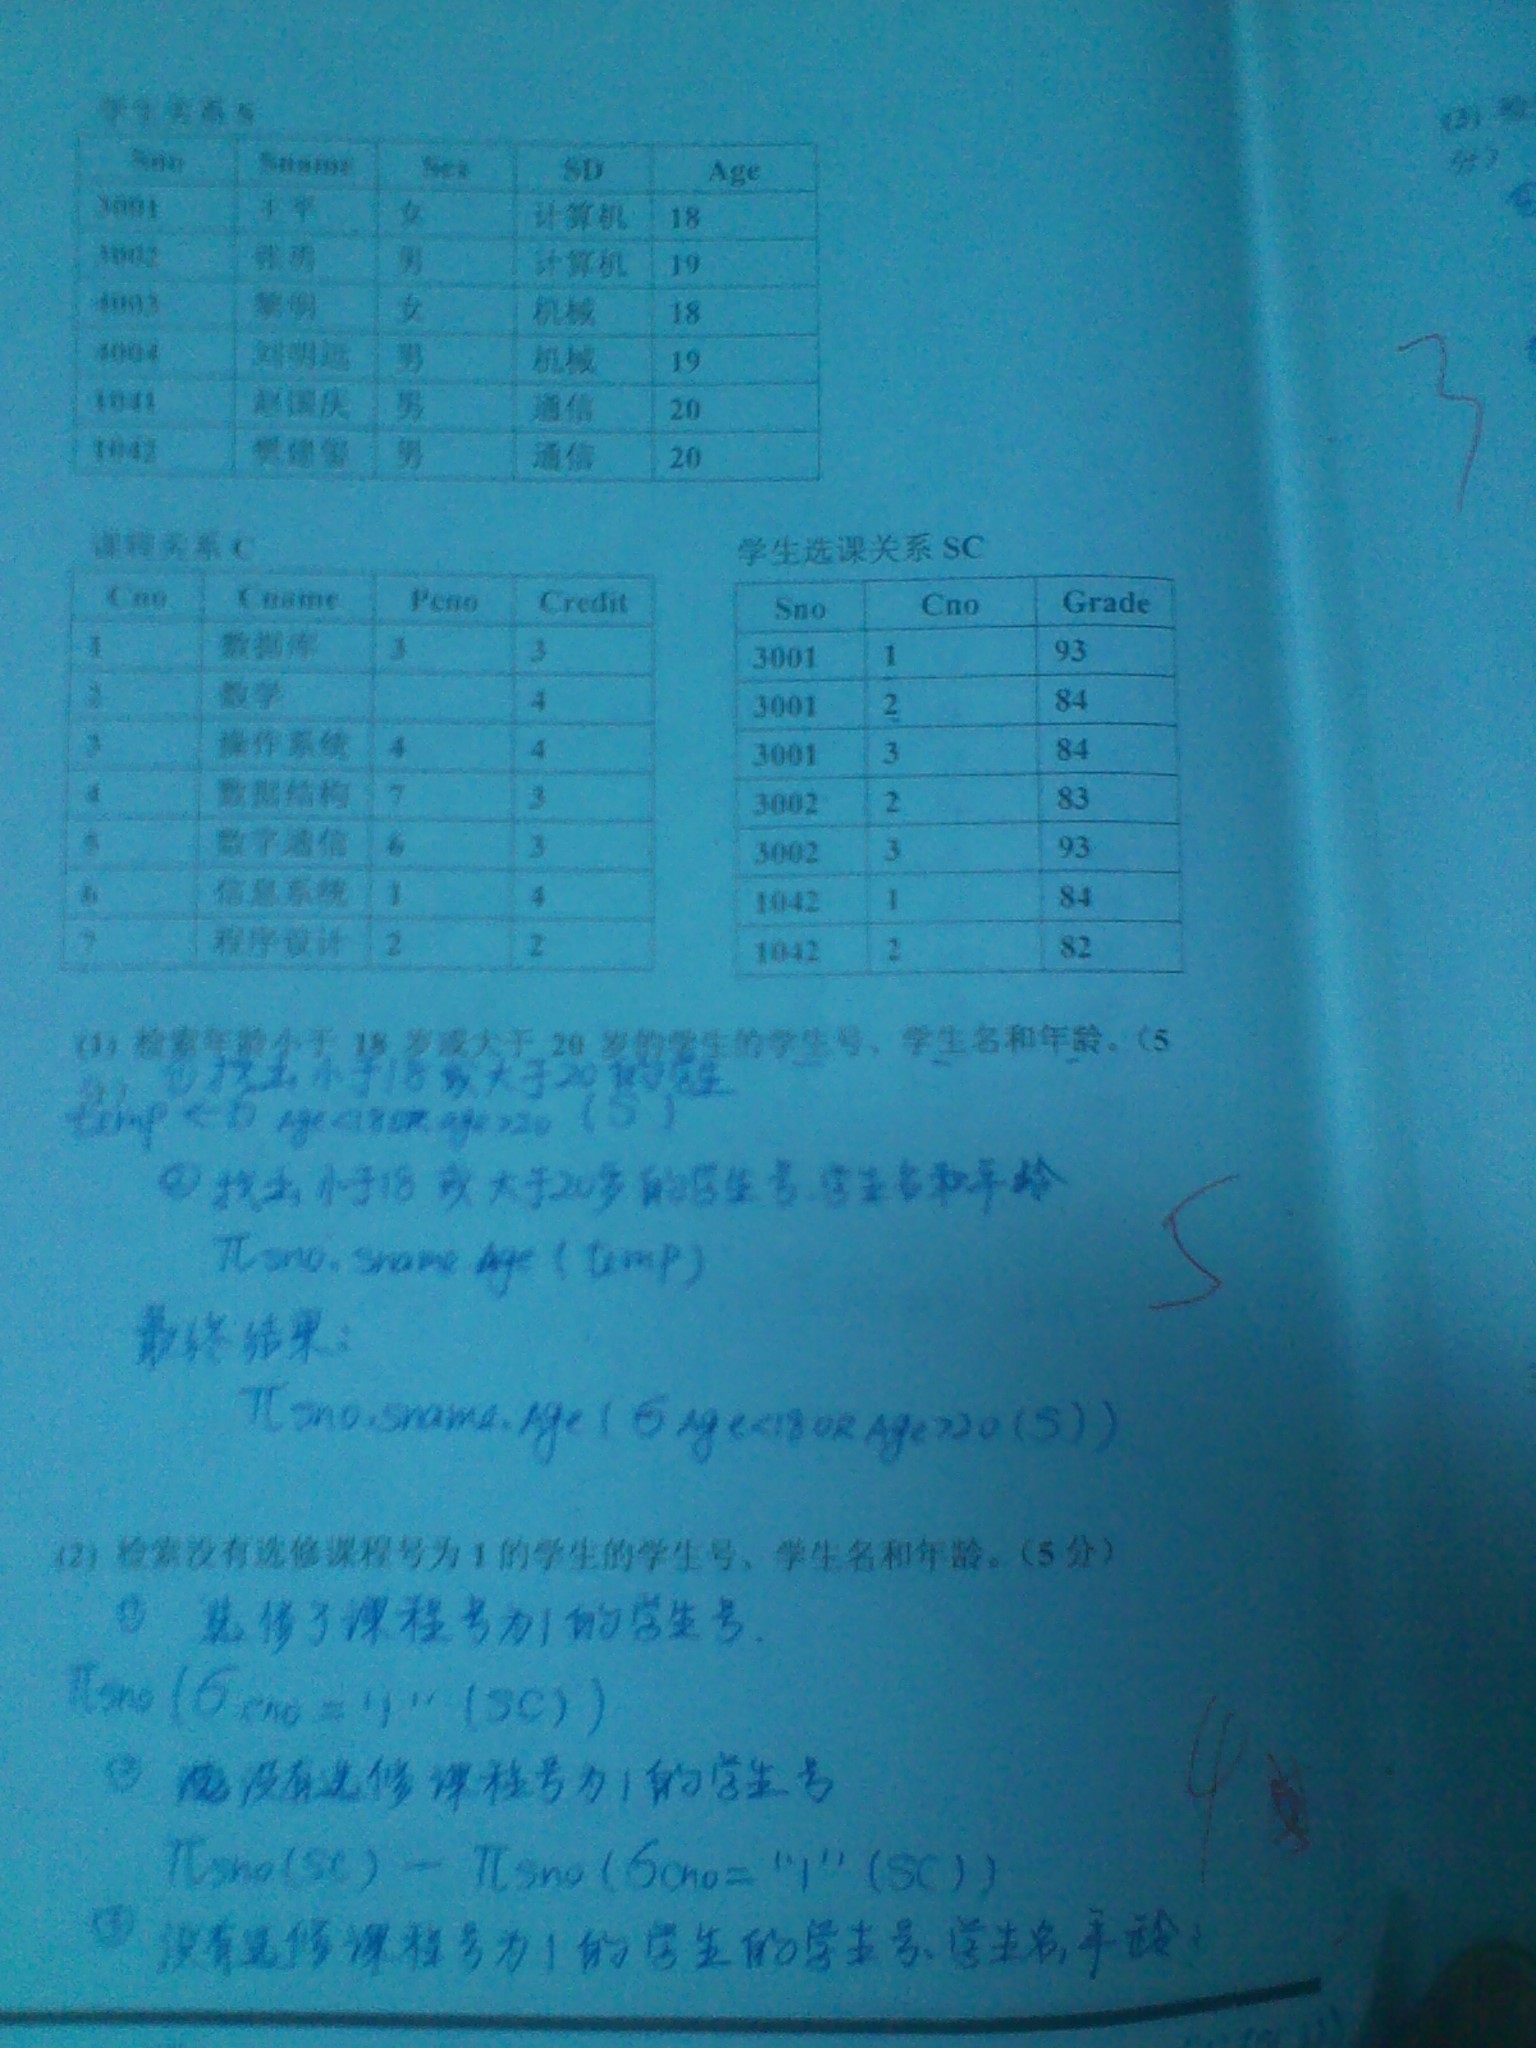 学生关系 S
Sno Sname Sex SD Age
3001 王平 女 计算机 18
3002 张勇 男 计算机 19
4003 黎明 女 机械 18
4004 刘明远 男 机械 19
1041 赵国庆 男 通信 20
1042 樊建玺 男 通信 20
课程关系 C
Cno Cname Pcno Credit
1 数据库 3 3
2 数学 4
3 操作系统 4 4
4 数据结构 7 3
5 数字通信 6 3
6 信息系统 1 4
7 程序设计 2 2
学生选课关系 SC
Sno Cno Grade
3001 1 93
3001 2 84
3001 3 84
3002 2 83
3002 3 93
1042 1 84
1042 2 82
(1) 检索年龄小于 18 岁或大于 20 岁的学生的学生号、学生名和年龄。(5
分)
① 找出小于18或大于20的学生
temp ← σ Age<18 OR Age>20 (S)
② 找出小于18或大于20岁的学生号.学生名和年龄
π sno. sname Age (temp)
最终结果:
π sno.sname.Age ( σ Age<18 OR Age>20 (S))
5
(2) 检索没有选修课程号为 1 的学生的学生号、学生名和年龄。(5 分)
① 选修了课程号为1的学生号.
π sno (σ cno = "1" (SC))
② 没有选修课程号为1的学生号
π sno (SC) — π sno (σ cno = "1" (SC))
4
③ 没有选修课程号为1的学生的学生号、学生名,年龄:
(3)
分)
3